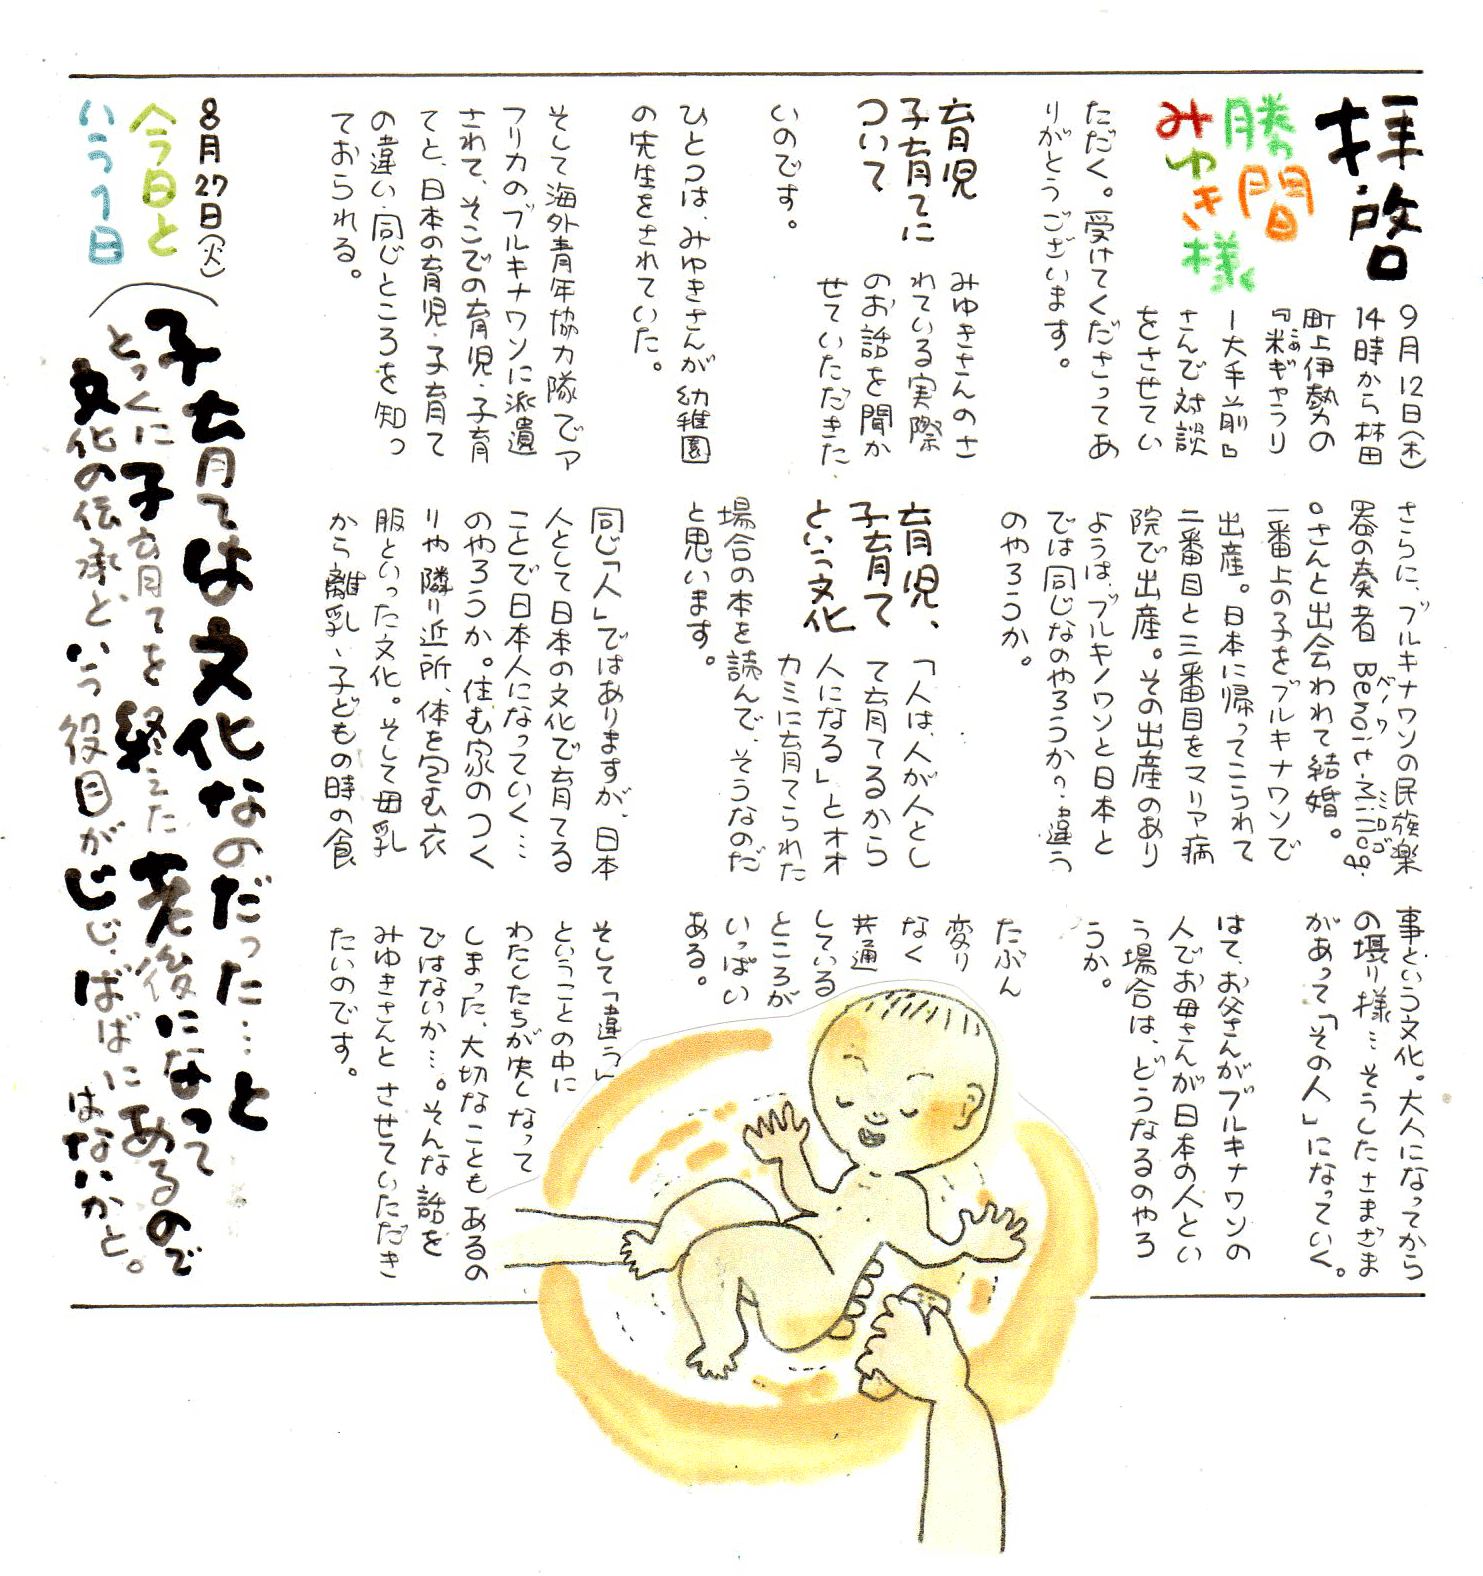 拝啓
勝間
みゆき様
9月12日(木)
14時から林田
町上伊勢の
『米ギャラリ
ー大手前』
さんで対談
をさせてい
ただく。受けてくださってあ
りがとうございます。
育児
子育てに
ついて
みゆきさんのさ
れている実際
のお話を聞か
せていただきた
いのです。
ひとつは、みゆきさんが幼稚園
の先生をされていた。
そして海外青年協力隊でア
フリカのブルキナワソに派遺
されて、そこでの育児・子育
てと、日本の育児・子育て
の違い、同じところを知っ
ておられる。
さらに、ブルキナワソの民族楽
器の奏者 Benoit・Millog
oさんと出会われて結婚。
ベノワ ミロゴ
一番上の子をブルキナワソで
出産。日本に帰ってこられて
二番目と三番目をマリア病
院で出産。その出産のあり
ようは、ブルキノワソと日本と
では同じなのやろうか?違う
のやろうか。
育児、
子育て
という文化
「人は、人が人とし
て育てるから
人になる」とオオ
カミに育てられた
場合の本を読んで、そうなのだ
と思います。
同じ「人」ではありますが、日本
人として日本の文化で育てる
ことで日本人になっていく…
のやろうか。住む家のつく
りや隣り近所、体を包む衣
服といった文化。そして母乳
から離乳、子どもの時の食
事という文化。大人になってから
の摂り様…そうしたさまざま
があって「その人」になっていく。
はて、お父さんがブルキナワソの
人でお母さんが日本の人とい
う場合は、どうなるのやろ
うか。
たぶん
変り
なく
共通
している
ところが
いっぱい
ある。
そして「違う」
ということの中に
わたしたちが失しなって
しまった、大切なこともあるの
ではないか…。そんな話を
みゆきさんとさせていただき
たいのです。
8月27日(火)
今日と
いう1日
子育ては文化なのだった…と
とくに子育てを終えた老後になって
文化の伝承という役目がじじ・ばばにあるので
はないかと。